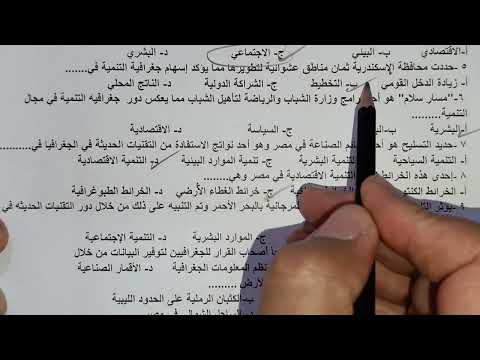 أ- الاقتصادي ب- البيئي ج- الاجتماعي د- البشري
٥ -حددت محافظة الإسكندرية ثمان مناطق عشوائية لتطويرها مما يؤكد إسهام جغرافية التنمية في........
أ- زيادة الدخل القومي ب- التخطيط ج- الشراكة الدولية د- الناتج المحلي
٦-"مسار سلام" هو أحد برامج وزارة الشباب والرياضة لتأهيل الشباب مما يعكس دور جغرافيه التنمية في مجال
التنمية.........
أ- البشرية ج- السياسة د- الاقتصادية
٧ -حديد التسليح هو أحد الصناعة في مصر وهو أحد نواتج الاستفادة من التقنيات الحديثة في الجغرافيا في
أ- التنمية السياحية التنمية البشرية ج- تنمية الموارد البيئية د- التنمية الاقتصادية
٨ -إحدى هذه الخرائط التنمية الاقتصادية في مصر وهي........
أ- الخرائط ج- خرائط الغطاء الأرضي د- الخرائط الطبوغرافية
المرجانية بالبحر الأحمر وتم التنبيه على ذلك من خلال دور التقنيات الحديثه في
ج- الموارد البشرية د- التنمية الإجتماعية
أصحاب القرار للجغرافيين لتوفير البيانات من خلال
نظم المعلومات الجغرافية د- الأقمار الصناعية
الأرض .........
ب- الكثبان الرملية على الحدود الليبية